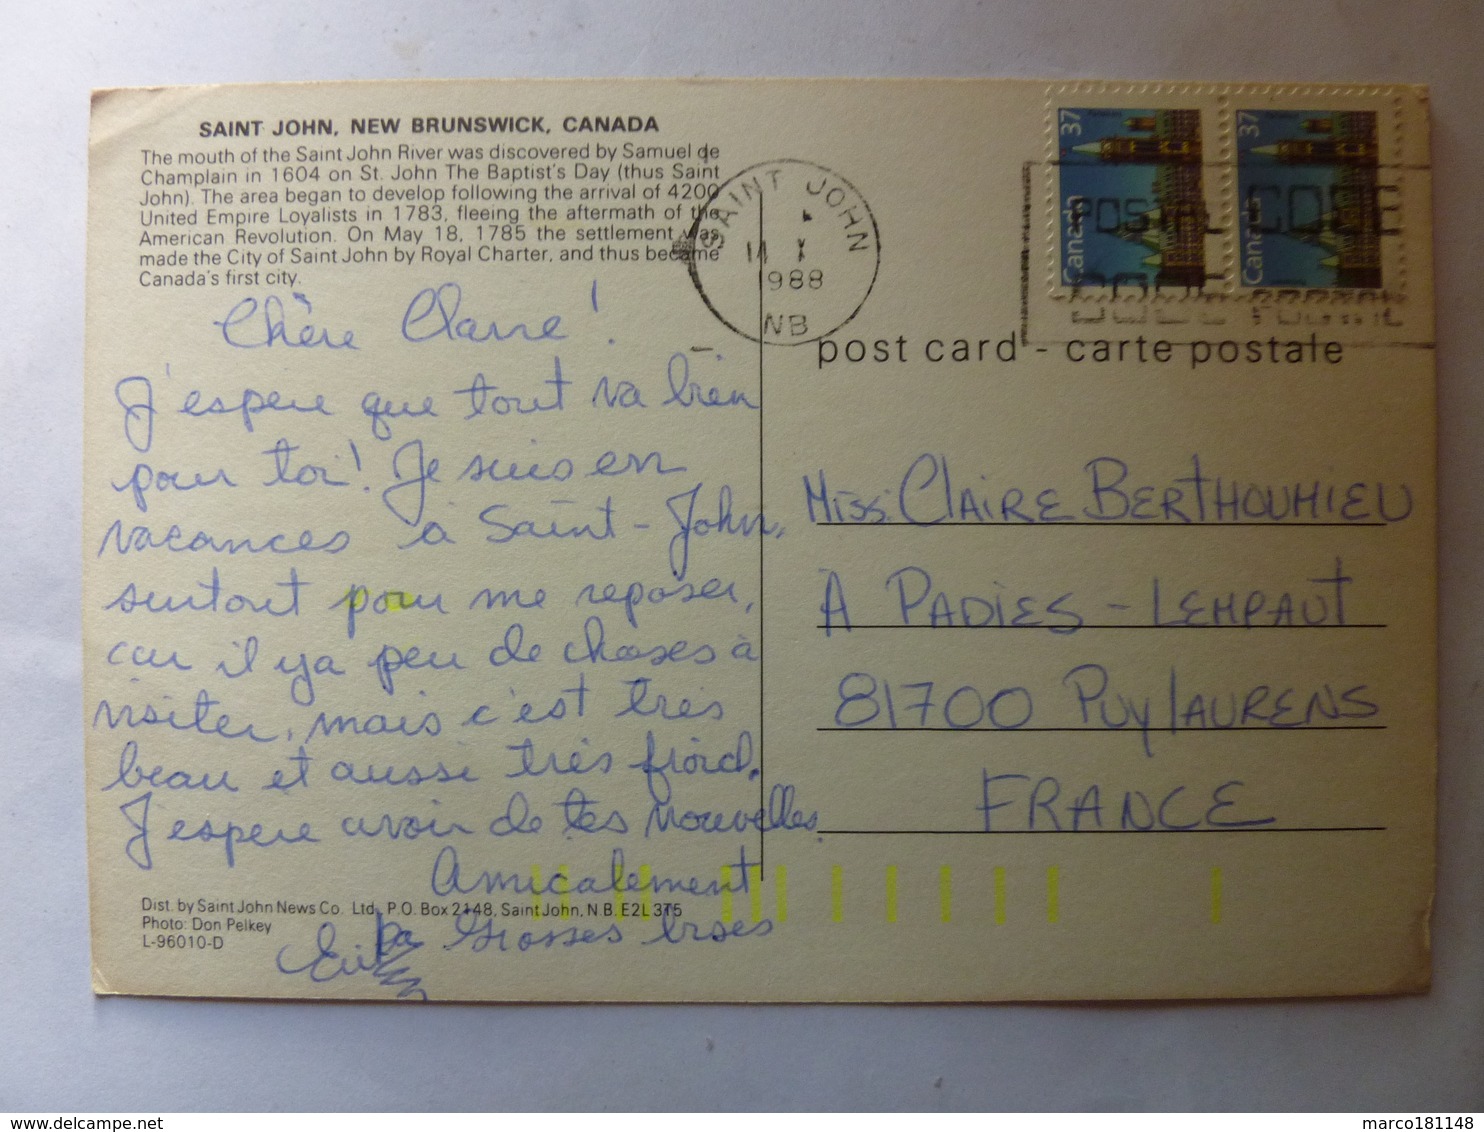 SAINT JOHN, NEW BRUNSWICK, CANADA
The mouth of the Saint John River was discovered by Samuel de
Champlain in 1604 on St. John The Baptist's Day (thus Saint
John). The area began to develop following the arrival of 4200
United Empire Loyalists in 1783, fleeing the aftermath of the
American Revolution. On May 18, 1785 the settlement was
made the City of Saint John by Royal Charter, and thus became
Canada's first city.
Chère Claire!
J'espère que tout va bien
pour toi! Je suis en
vacances à Saint-John,
surtout pour me reposer,
car il y a peu de choses à
visiter, mais c'est très
beau et aussi très froid.
J'espère avoir de tes nouvelles
Amicalement
Grosses bises
Dist. by Saint John News Co. Ltd. P.O. Box 2148, Saint John, N.B. E2L 3T5
Photo: Don Pelkey
L-96010-D
SAINT JOHN
14 X
1988
NB
Canada 37
Canada 37
POSTAL CODE
post card - carte postale
Miss. CLAIRE BERTHOUMIEU
A PADIES - LEMPAUT
81700 PUYLAURENS
FRANCE
marco181148